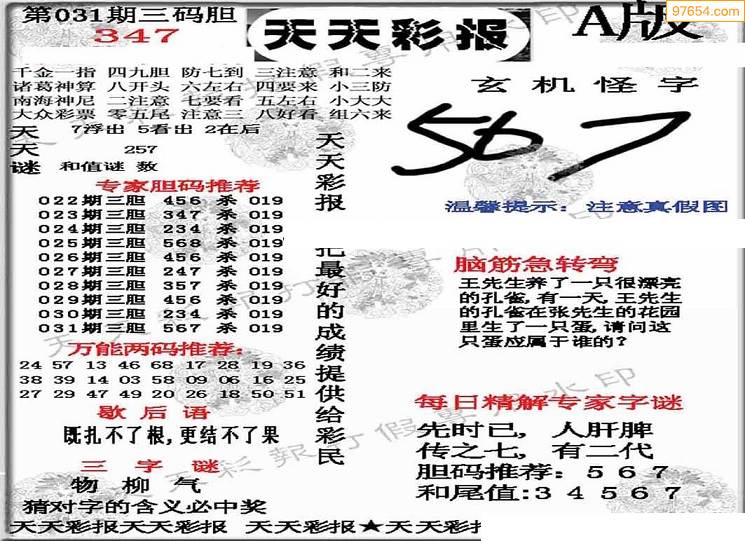 第031期三码胆
347
天天彩报
A版
97654.com
千金一指 四九胆 防七到 三注意 和二来
诸葛神算 八开头 六左右 四要来 小三防
南海神尼 二注意 七要看 五左右 小大大
大众彩票 零五尾 注意三 八好看 组六来
天 7浮出 5看出 2在后
天 257
谜 和值谜 数
专家胆码推荐
022期三胆 456 杀 019
023期三胆 347 杀 019
024期三胆 234 杀 019
025期三胆 568 杀 019
026期三胆 456 杀 019
027期三胆 247 杀 019
028期三胆 357 杀 019
029期三胆 456 杀 019
030期三胆 234 杀 019
031期三胆 567 杀 019
万能两码推荐:
24 57 13 46 68 17 28 19 36
38 39 14 03 58 09 06 16 25
27 29 47 49 20 26 18 50 51
歇后语
既扎不了根,更结不了果
三字谜
物柳气
猜对字的含义必中奖
天天彩报
把最好的成绩提供给彩民
玄机怪字
567
温馨提示: 注意真假图
脑筋急转弯
王先生养了一只很漂亮
的孔雀,有一天,王先生
的孔雀在张先生的花园
里生了一只蛋,请问这
只蛋应属于谁的?
每日精解专家字谜
先时已, 人肝脾
传之七, 有二代
胆码推荐: 5 6 7
和尾值:3 4 5 6 7
天天彩报天天彩报 天天彩报★天天彩报